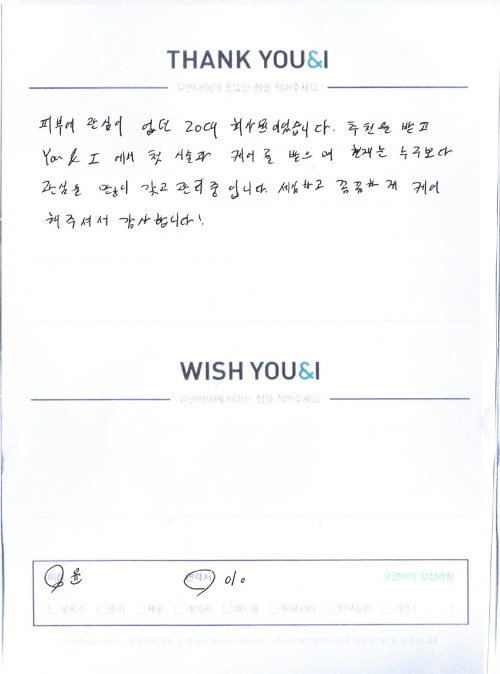 THANK YOU&I
유앤아이의 좋았던 점을 적어주세요
피부에 관심이 없던 20대 회사원이었습니다. 추천을 받고
You & I 에서 첫 시술과 케어를 받으며 현재는 누구보다
관심을 많이 갖고 관리중입니다. 세심하고 꼼꼼하게 케어
해주셔서 감사합니다!
WISH YOU&I
유앤아이에 바라는 점을 적어주세요
이름 윤 연락처 010
보톡스 필러 제모 레이저 여드름 피부관리 기타 ( )